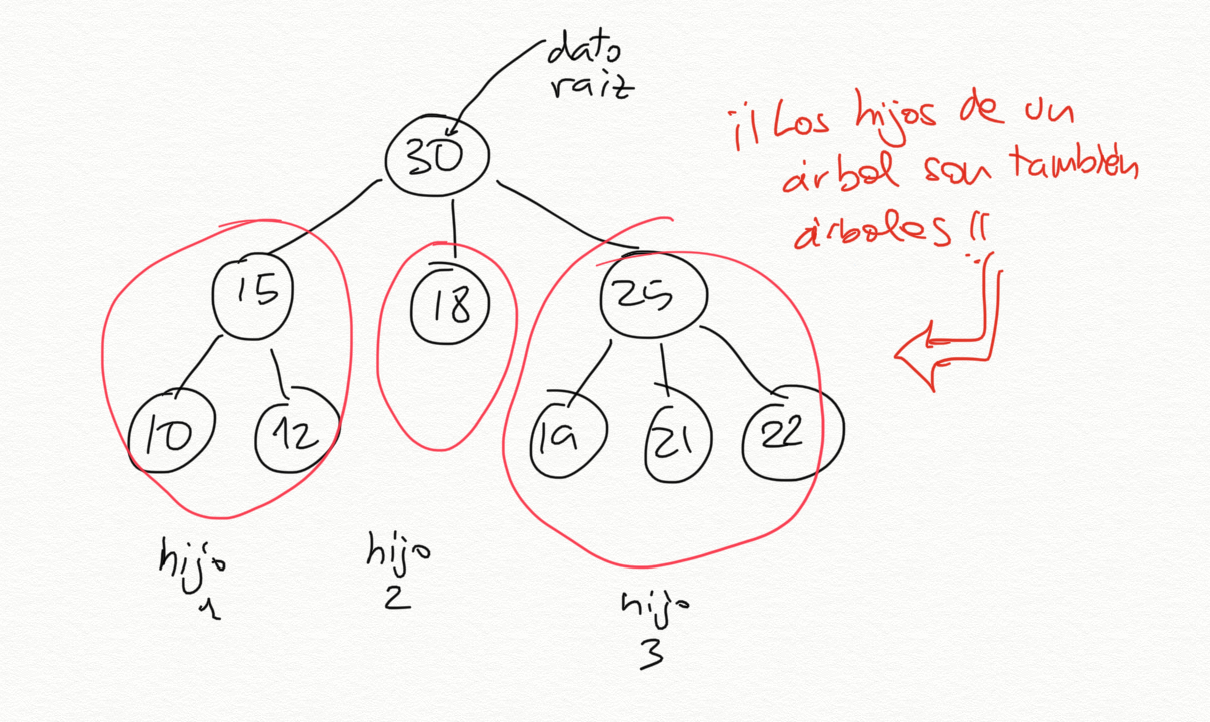 dato
raiz
¡¡Los hijos de un
árbol son también
árboles!!
30
15
18
25
10
12
19
21
22
hijo
1
hijo
2
hijo
3